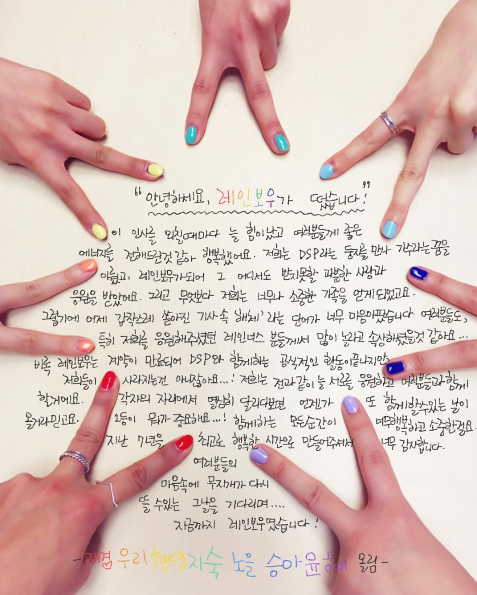 "안녕하세요, 레인보우가 떴습니다!"
이 인사를 외칠때마다 늘 힘이났고 여러분들께 좋은
에너지를 전해드린것 같아 행복했어요. 저희는 DSP라는 둥지를 만나 가수라는 꿈을
이뤘고, 레인보우가되어 그 어디서도 받지못할 과분한 사랑과
응원을 받았어요. 그리고 무엇보다 저희는 너무나 소중한 가족을 얻게되었고요.
그렇기에 어제 갑작스레 쏟아진 기사속 '해체'라는 단어가 너무 마음아팠습니다 여러분들도,
특히 저희를 응원해주셨던 레인너스 분들께서 많이 놀라고 속상하셨을것 같아요...
비록 레인보우는 계약이 만료되어 DSP와 함께하는 공식적인 활동이 끝나지만,
저희들이 사라지는건 아니잖아요...! 저희는 전과 같이 늘 서로를 응원하고 여러분들과 함께
할거에요. 각자의 자리에서 열심히 달리다보면 언젠가 또 함께 할수있는 날이
올거라 믿고요. 1등이 뭐가 중요해요...! 함께하는 모든순간이 행복하고 소중한걸요.
지난 7년을 최고로 행복한 시간으로 만들어주셔서 너무 감사합니다.
여러분들의
마음속에 무지개가 다시
뜰 수있는 그날을 기다리며....
지금까지 레인보우였습니다!
-재경 우리 현영 지숙 노을 승아 윤혜 올림-